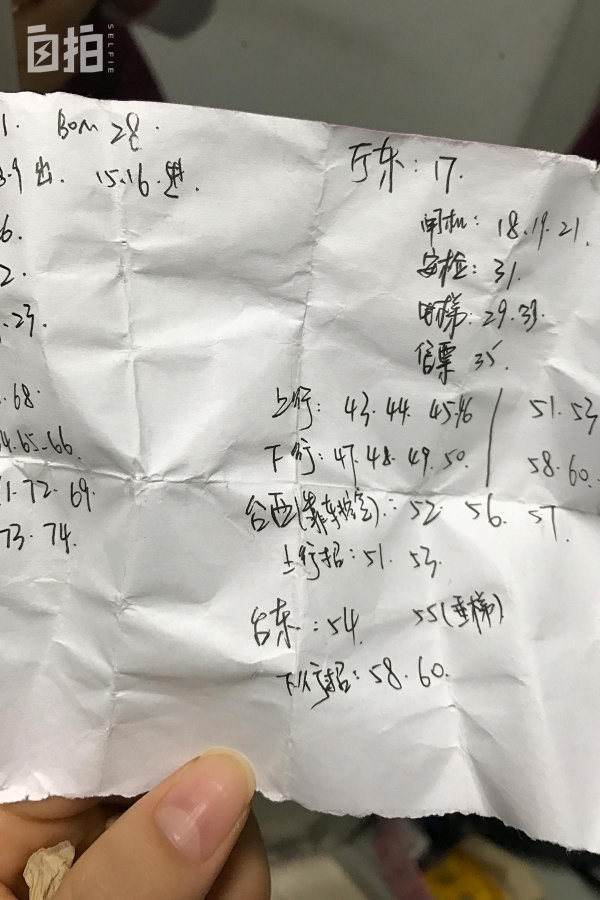 自拍
SELFIE
1. BOM 28.
8.9 出. 15.16.进.
6.
2.
.23.
.68.
64.65.66.
71.72.69.
73.74.
厅东: 17.
闸机: 18.19.21.
安检: 31.
电梯: 29.39.
售票 35.
上行: 43.44.45.46 / 51.53
下行: 47.48.49.50. 58.60.
台西(靠车控室).: 52 56. 57.
上行招: 51. 53.
台东: 54. 55(垂梯)
下行招: 58.60.